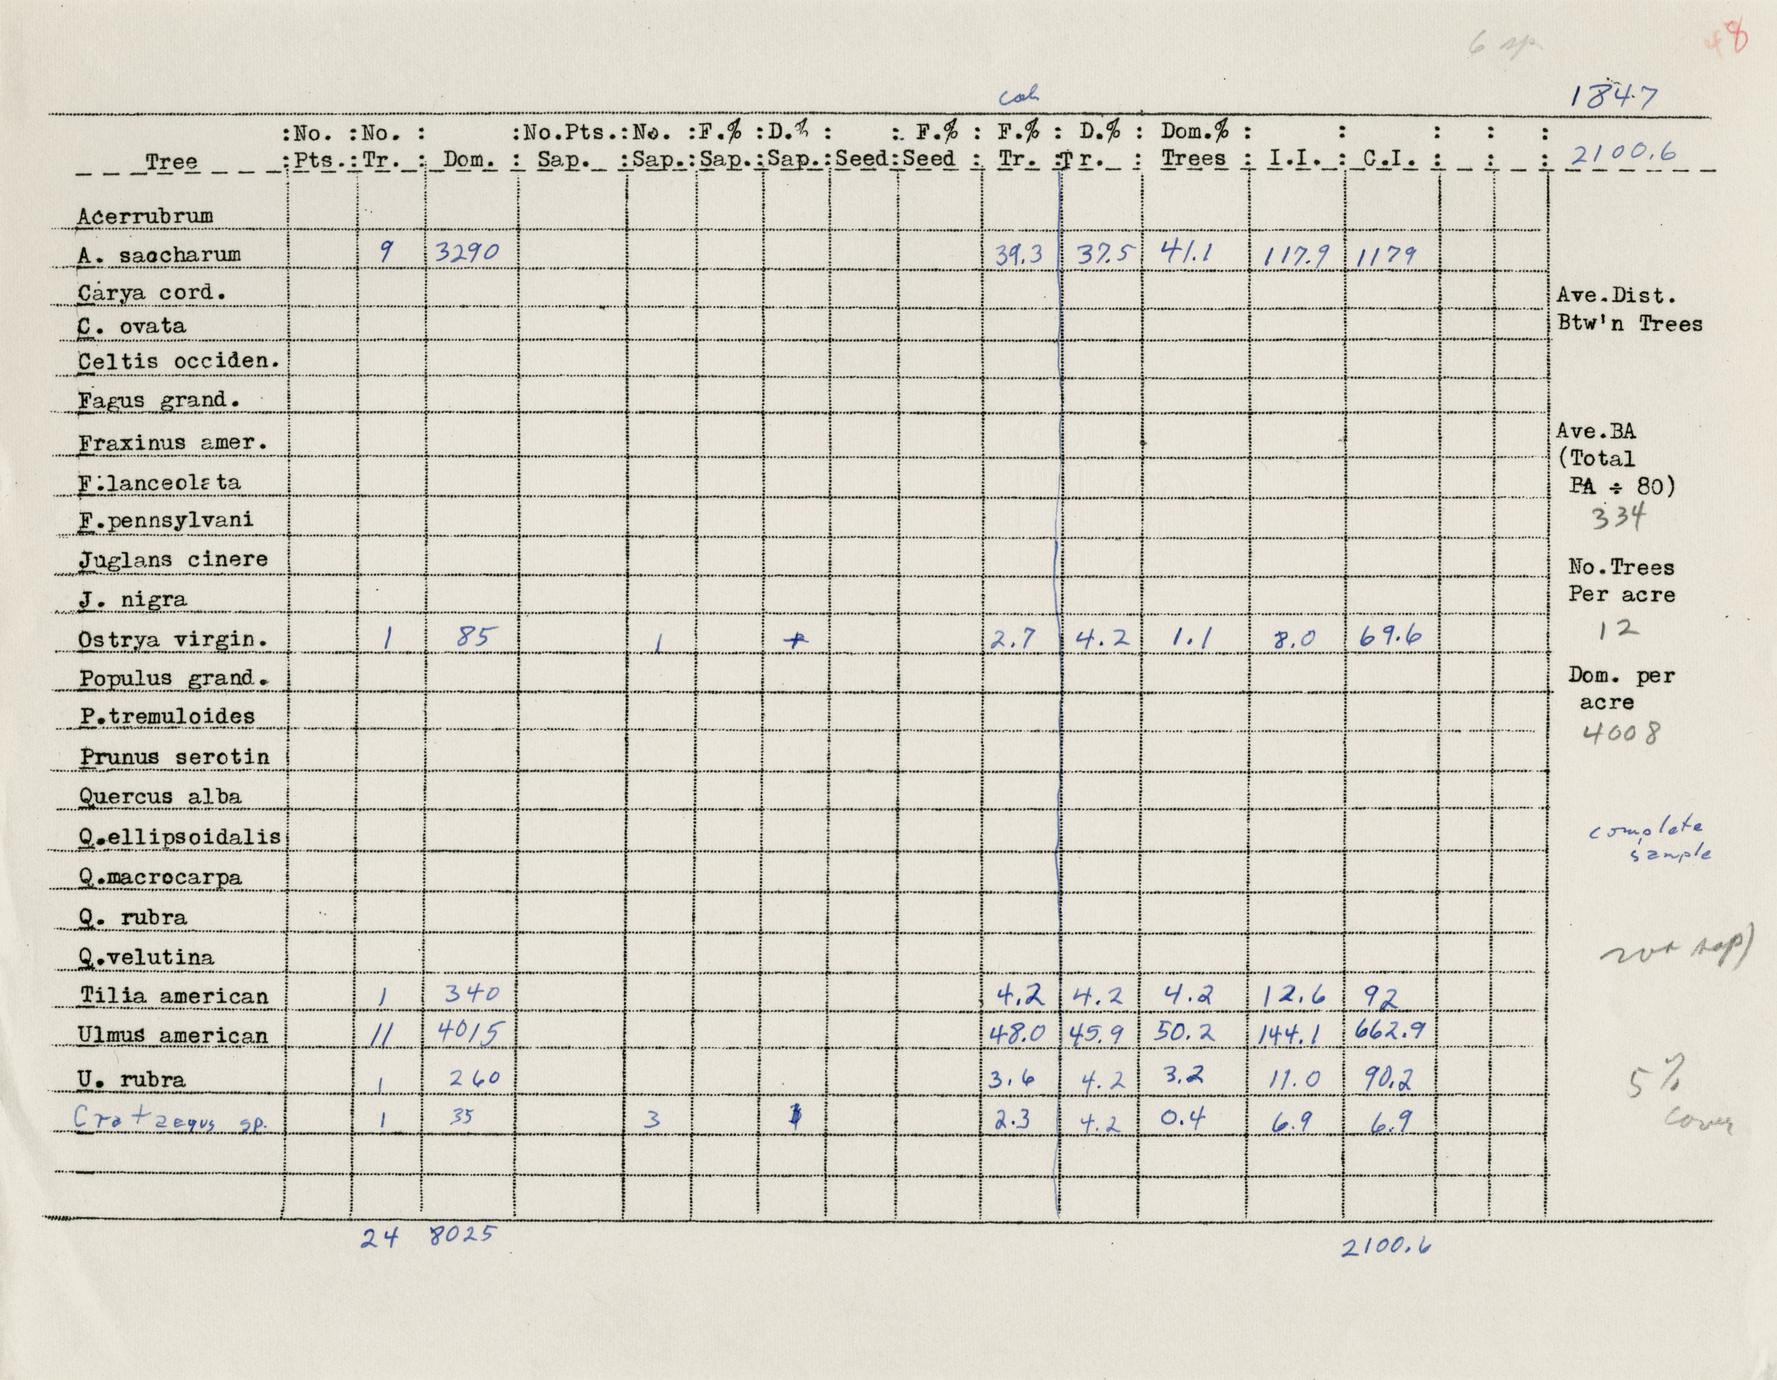 6 sp. 48
cal 1847
:No. :No. : :No.Pts.:No. :F.% :D.% : : F.% : F.% : D.% : Dom.% : : : : :
Tree :Pts.:Tr. : Dom. : Sap. :Sap.:Sap.:Sap.:Seed:Seed : Tr. :Tr. : Trees : I.I. : C.I. : : : 2100.6
Acerrubrum
A. saccharum 9 3290 39.3 37.5 41.1 117.9 1179
Carya cord. Ave.Dist.
C. ovata Btw'n Trees
Celtis occiden.
Fagus grand.
Fraxinus amer. Ave.BA
(Total
F.lanceolata BA ÷ 80)
F.pennsylvani 334
Juglans cinere No.Trees
J. nigra Per acre
Ostrya virgin. 1 85 1 + 2.7 4.2 1.1 8.0 69.6 12
Populus grand. Dom. per
P.tremuloides acre
Prunus serotin 4008
Quercus alba
Q.ellipsoidalis complete
sample
Q.macrocarpa
Q. rubra
Q.velutina not sap)
Tilia american 1 340 4.2 4.2 4.2 12.6 92
Ulmus american 11 4015 48.0 45.9 50.2 144.1 662.9
U. rubra 1 260 3.6 4.2 3.2 11.0 90.2 5%
Crataegus sp. 1 35 3 1 2.3 4.2 0.4 6.9 6.9 cover
24 8025 2100.6